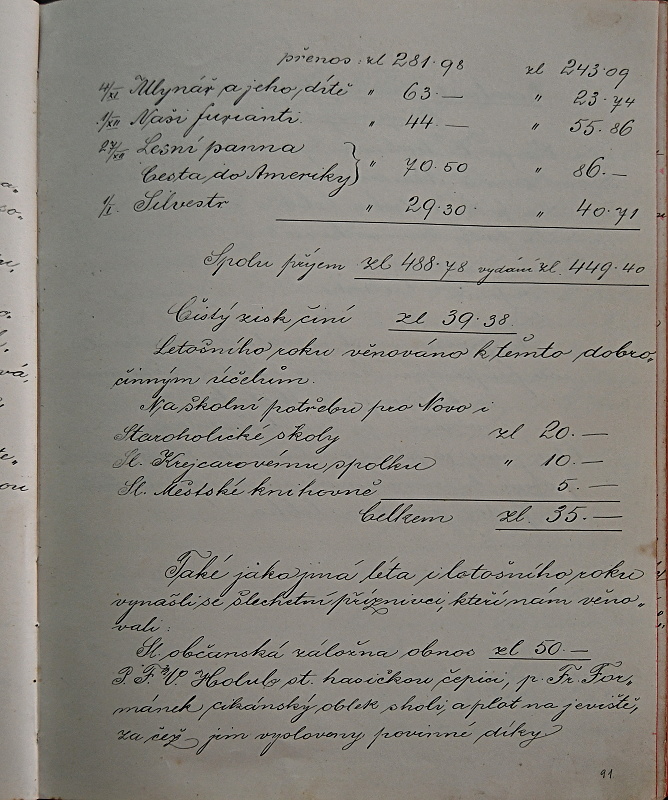 přenos: zl 281.98 zl 243.09
4/XI Mlynář a jeho dítě " 63.— " 23.74
1/XII Naši furianti. " 44.— " 55.86
27/XII Lesní panna
Cesta do Ameriky } " 70.50 " 86.—
1/I. Silvestr " 29.30. " 40.71
Spolu příjem zl 488.78 vydání zl. 449.40
Čistý zisk činí zl 39.38.
Letošního roku věnováno k těmto dobro„
činným účelům.
Na školní potřebu pro Novo i
Staroholické školy zl 20.—
Sl. Krejcarovému spolku " 10.—
Sl. Městské knihovně 5.—
Celkem zl. 35.—
Také jako jiná léta i letošního roku
vynašli se šlechetní příznivci, kteří nám věno„
vali:
Sl. občanská záložna obnos zl 50.—
P. F. V. Holub st. hasičkou čepici, p. Fr. For„
mánek cikánský oblek sholi, a plot na jeviště,
za čež jim vysloveny povinné díky
91